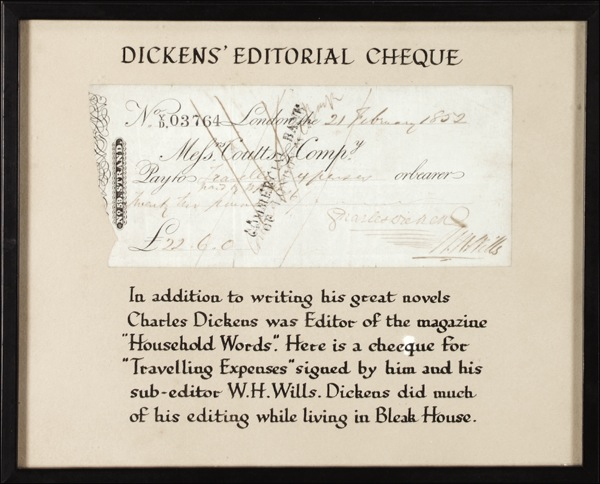 DICKENS' EDITORIAL CHEQUE
No. D. 03764 London the 21 February 1852
Messrs Coutts & Compy
Pay to Travelling Expenses or bearer
Twenty two pounds
£22.6.0
Charles Dickens
W H Wills
No 59 STRAND
COMMERCIAL BANK
In addition to writing his great novels
Charles Dickens was Editor of the magazine
"Household Words". Here is a checque for
"Travelling Expenses" signed by him and his
sub-editor W.H. Wills. Dickens did much
of his editing while living in Bleak House.